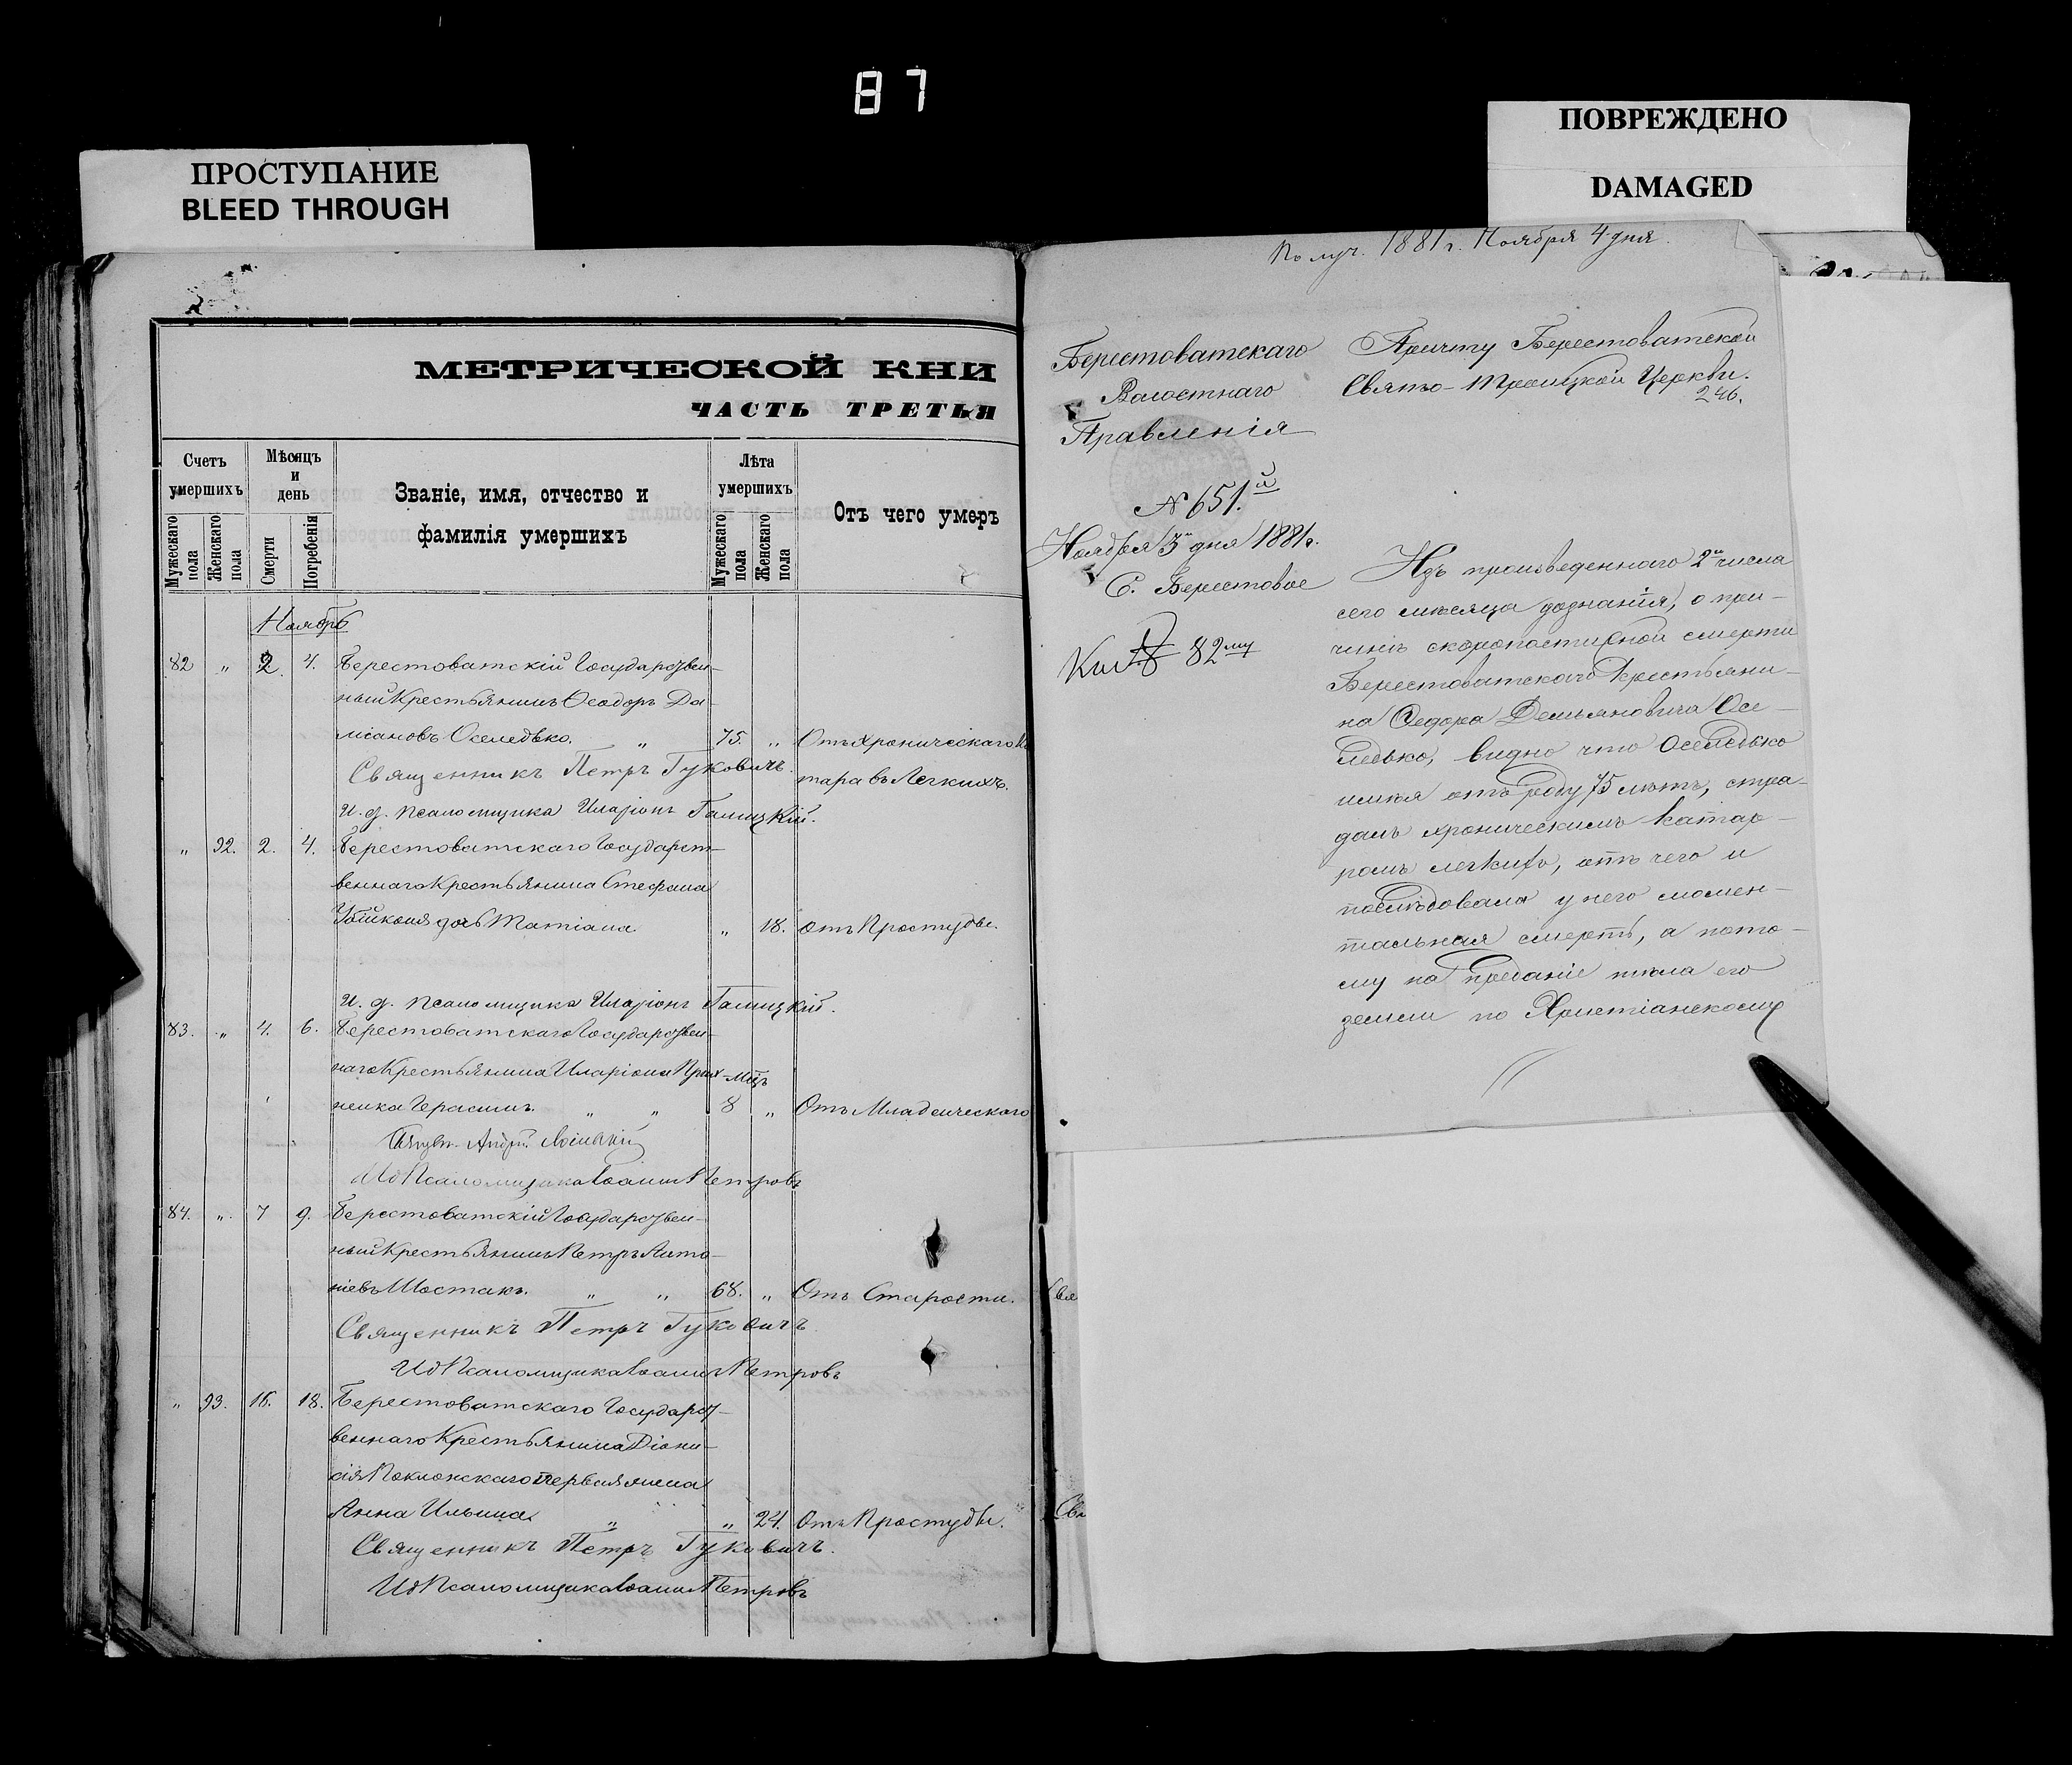 87
ПРОСТУПАНИЕ
BLEED THROUGH
ПОВРЕЖДЕНО
DAMAGED
МЕТРИЧЕСКОЙ КНИ
ЧАСТЬ ТРЕТЬЯ
Счетъ умершихъ
Мужескаго пола
Женскаго пола
Мѣсяцъ и день
Смерти
Погребенія
Званіе, имя, отчество и
фамилія умершихъ
Лѣта умершихъ
Мужескаго пола
Женскаго пола
Отъ чего умеръ
Ноябрь
82 „ 2. 4. Берестоватскій Государствен-
ный Крестьянинъ Ѳеодоръ Да-
міановъ Оселедько. „ 75. „ Отъ Хроническаго Ка
Священникъ Петръ Гуковичъ. тара въ Легкихъ.
И. д. псаломщика Иларіонъ Галицкій.
„ 92. 2. 4. Берестоватскаго Государст-
веннаго Крестьянина Стефана
дочь Татіана „ 18. Отъ Простуды.
И. д. псаломщика Иларіонъ Галицкій.
83. „ 4. 6. Берестоватскаго Государствен-
наго Крестьянина Иларіона мѣс
Герасимъ. „ „ 8 „ Отъ Младенческаго
ИдПсаломщика Іоаннъ Петровъ
84. „ 7 9. Берестоватскій Государствен-
ный Крестьянинъ Петръ Анто-
ніевъ Шостакъ. „ „ 68. „ Отъ Старости.
Священникъ Петръ Гуковичъ
ИдПсаломщика Іоаннъ Петровъ
„ 93. 16. 18. Берестоватскаго Государст-
веннаго Крестьянина Діони-
сія Поклонскаго первая жена
Анна Ильина „ „ 24. Отъ Простуды.
Священникъ Петръ Гуковичъ.
ИдПсаломщика Іоаннъ Петровъ
Получ. 1881 г. Ноября 4 дня.
Берестоватскаго
Волостнаго
Правленія
№ 651.й
Ноября 3 дня 1881 г.
С. Берестовое
82му
Причту Берестоватской
Свято-Троицкой Церкви.
246.
Изъ произведеннаго 2го числа
сего мѣсяца дознанія, о при-
чинѣ скоропостижной смерти
Берестоватскаго Крестьяни-
на Федора Демьяновича Осе-
ледько, видно что Оселедько
имѣя отъ роду 75 лѣтъ, стра-
далъ хроническимъ катар-
ромъ легкихъ, отъ чего и
послѣдовала у него момен-
тальная смерть, а пото-
му на преданіе тѣла его
земли по Христіанскому